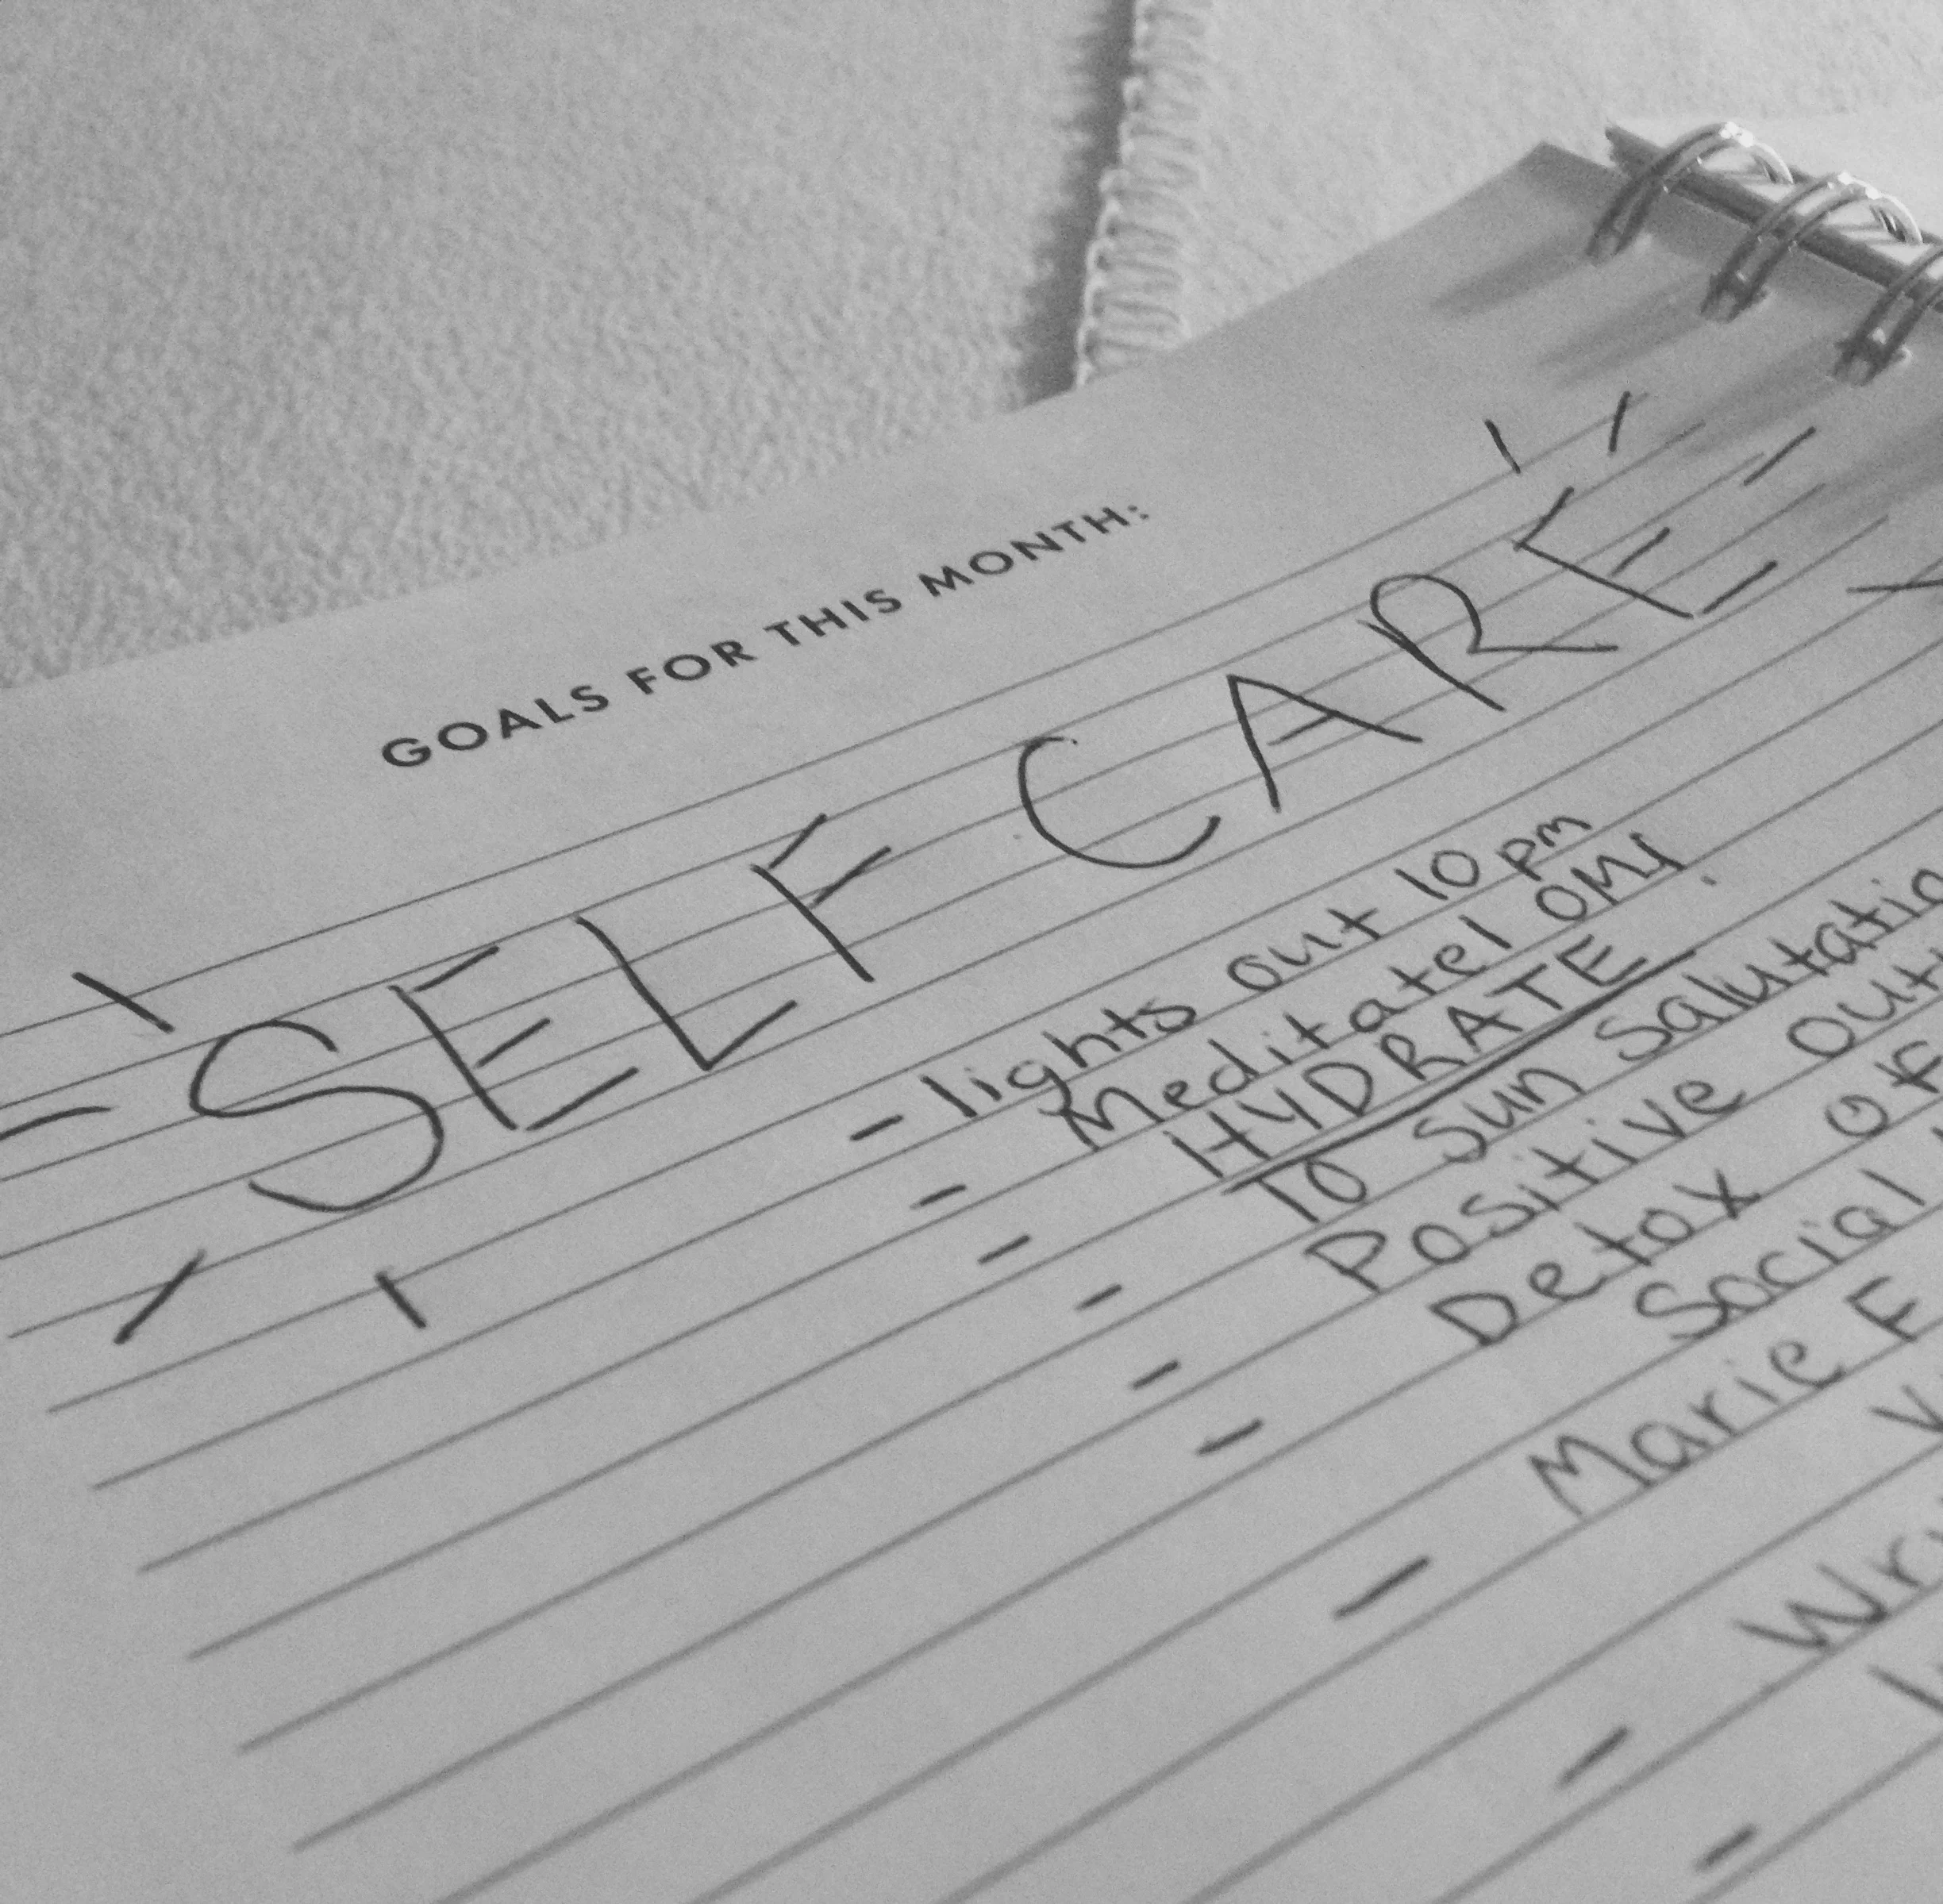 GOALS FOR THIS MONTH:
SELF CARE
- lights out 10 pm
- Meditate! OM!
- HYDRATE
- 10 Sun Salutatio
- Positive out
- Detox of
Social
- Marie F
- Wri
-